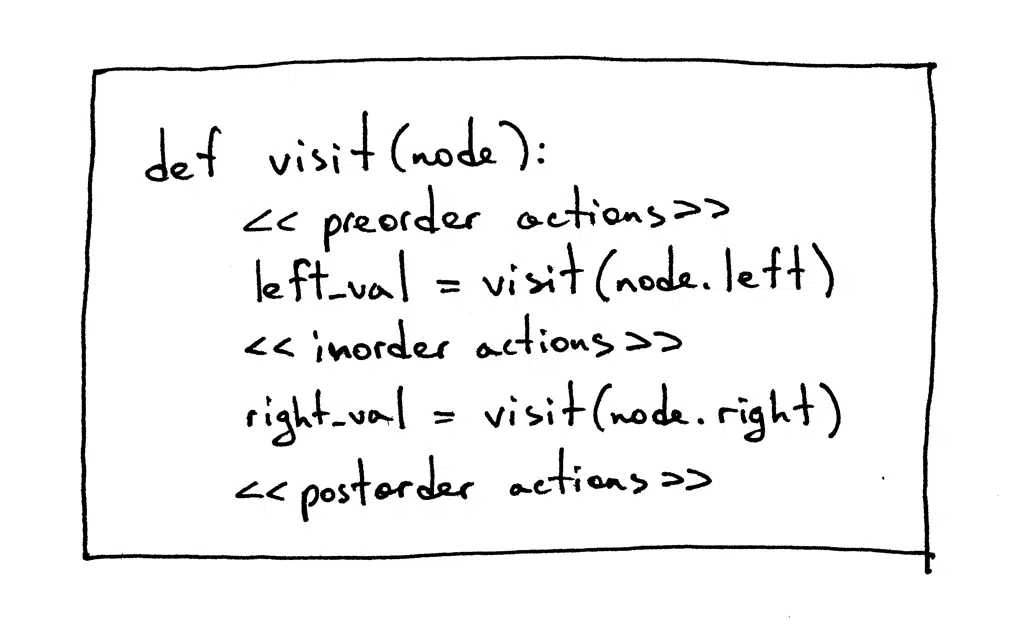 def visit(node):
<< preorder actions>>
left_val = visit(node.left)
<< inorder actions>>
right_val = visit(node.right)
<< postorder actions>>